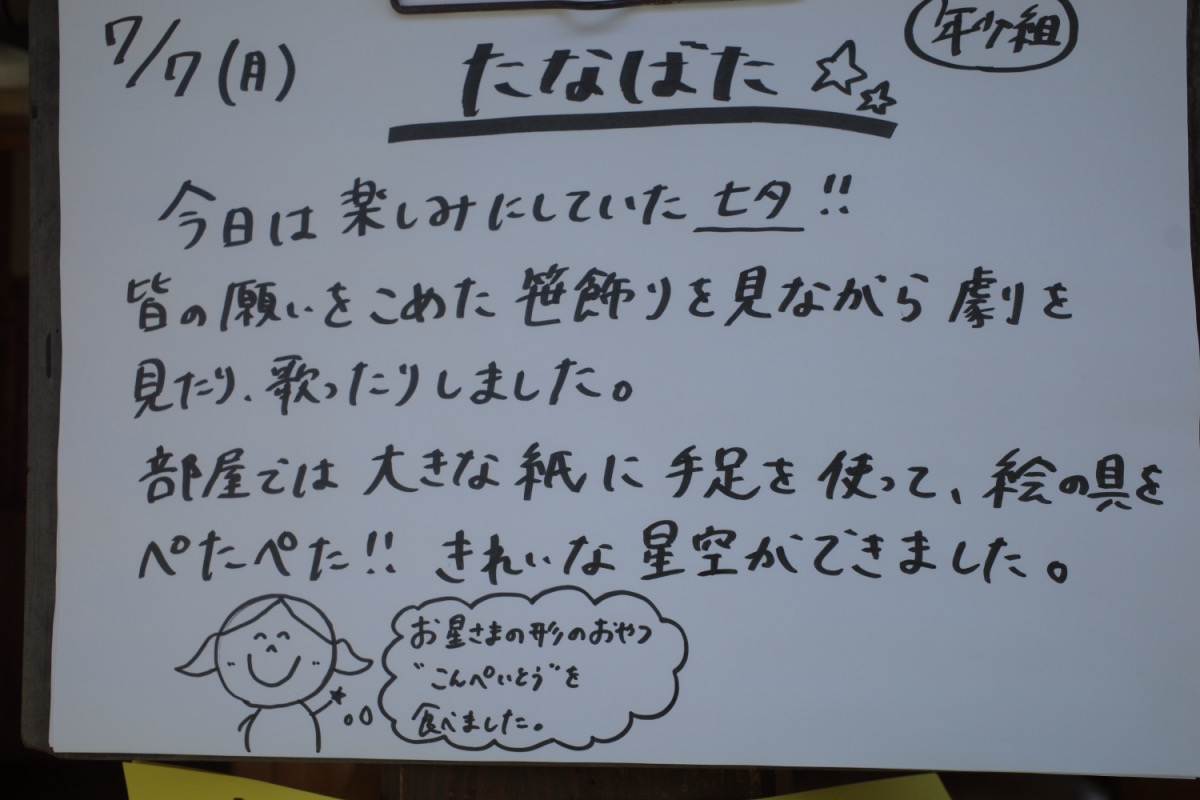 7/7(月)
たなばた
年少組
今日は楽しみにしていた七夕!!
皆の願いをこめた笹飾りを見ながら劇を
見たり、歌ったりしました。
部屋では大きな紙に手足を使って、絵の具を
ぺたぺた!!きれいな星空ができました。
お星さまの形のおやつ
"こんぺいとう"を
食べました。